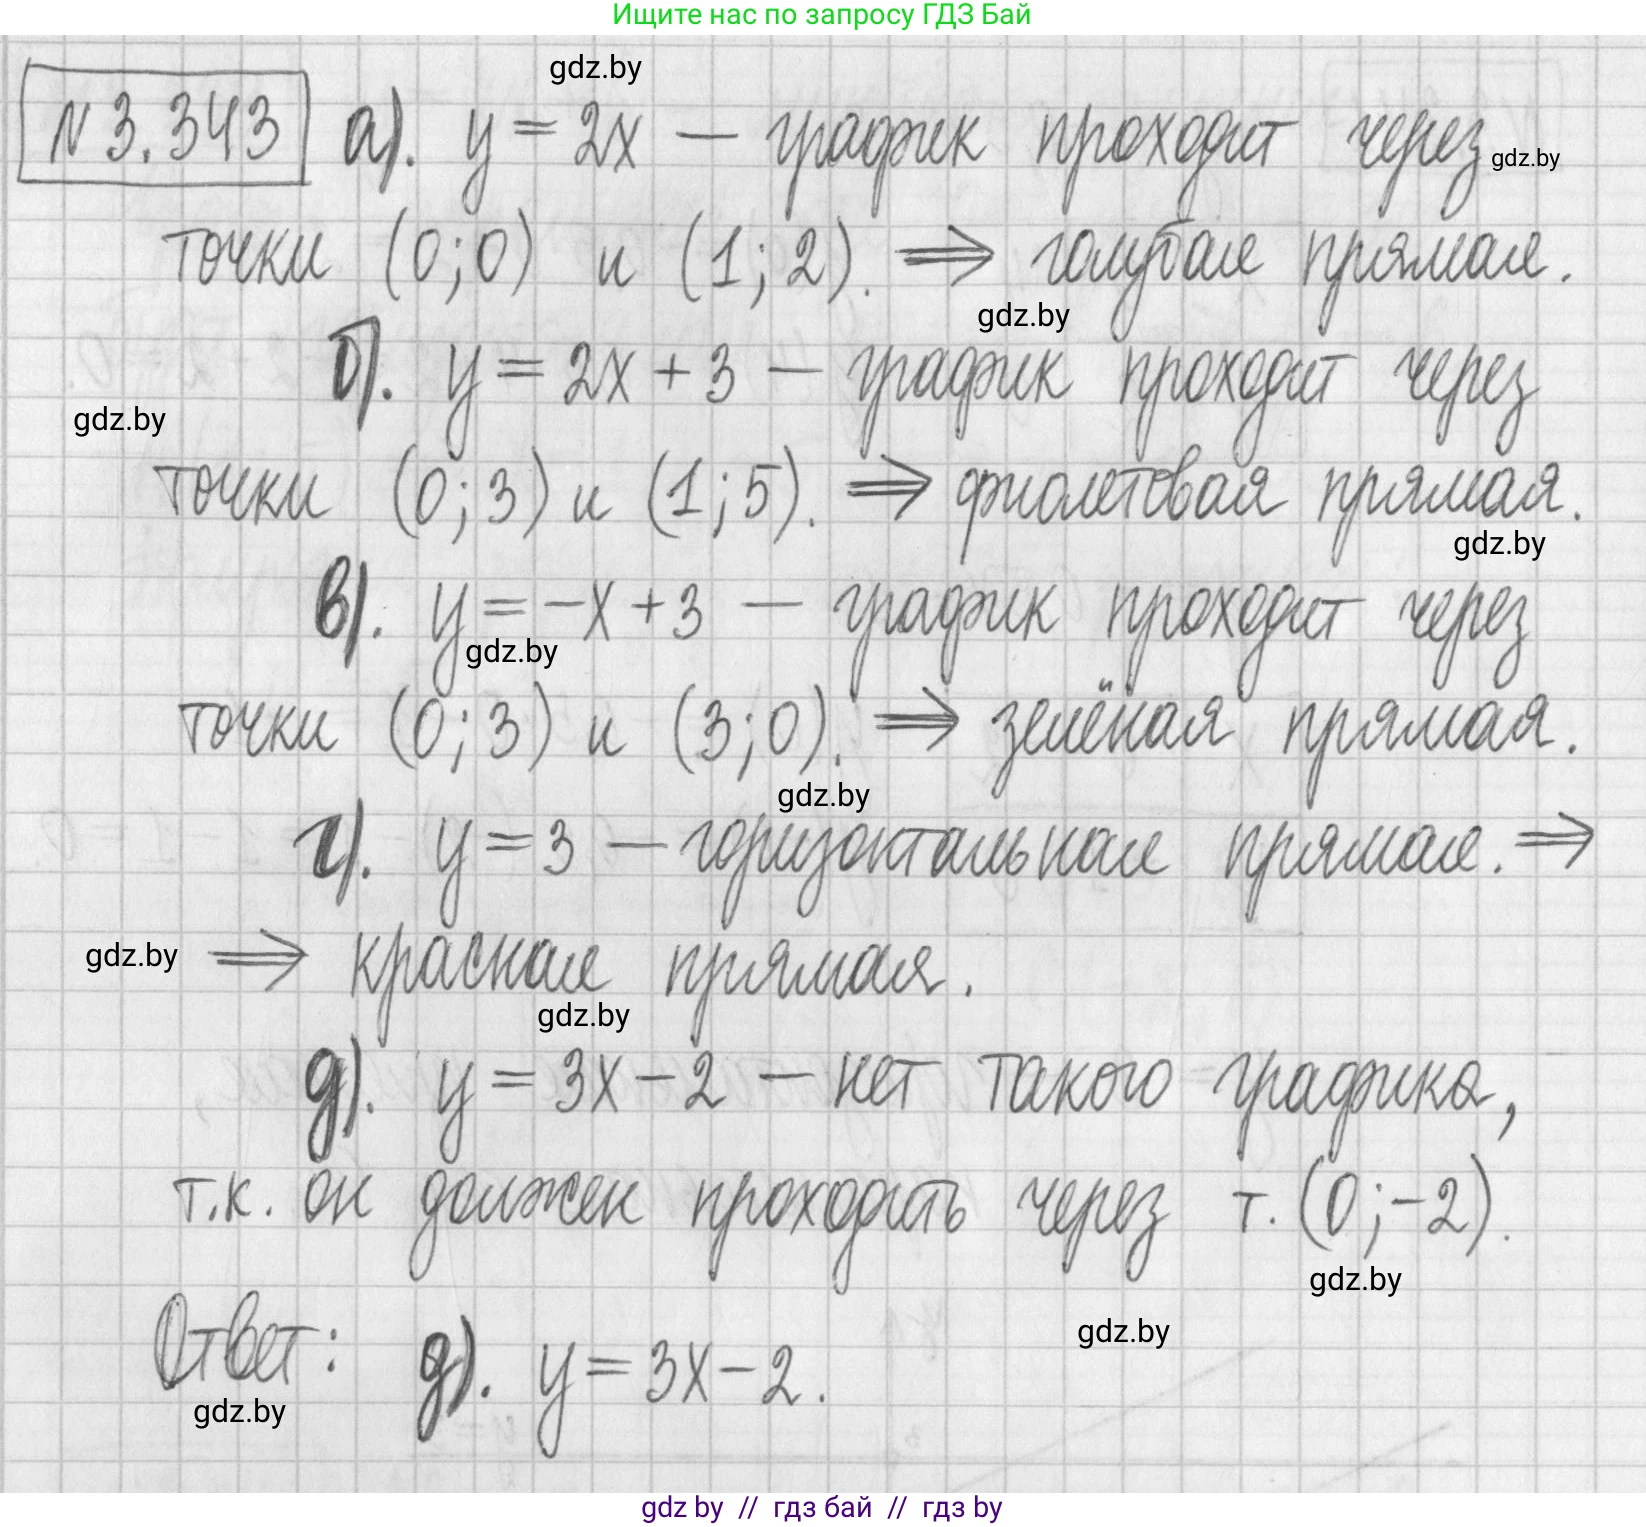 Ищите нас по запросу ГДЗ Бай
gdz.by
N 3.343 а). y = 2x — график проходит через
gdz.by
точки (0;0) и (1;2). ⇒ голубая прямая.
gdz.by
б). y = 2x + 3 — график проходит через
gdz.by
точки (0;3) и (1;5). ⇒ фиолетовая прямая.
gdz.by
в). y = -x + 3 — график проходит через
gdz.by
точки (0;3) и (3;0). ⇒ зелёная прямая.
gdz.by
г). y = 3 — горизонтальная прямая. ⇒
gdz.by ⇒ красная прямая.
gdz.by
д). y = 3x - 2 — нет такого графика,
т.к. он должен проходить через т. (0;-2).
gdz.by
gdz.by
Ответ: д). y = 3x - 2.
gdz.by
gdz by // гдз бай // гдз by